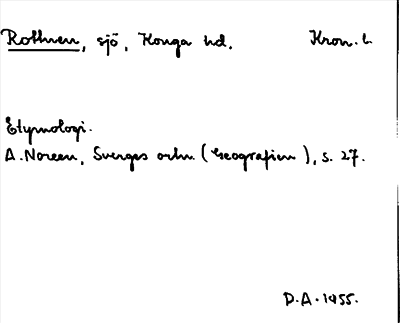 Rottnen, sjö, Konga hd. Kron. l.
Etymologi.
A. Noreen, Sveriges ortn. (Geografien), s. 27.
D.A. 1955.